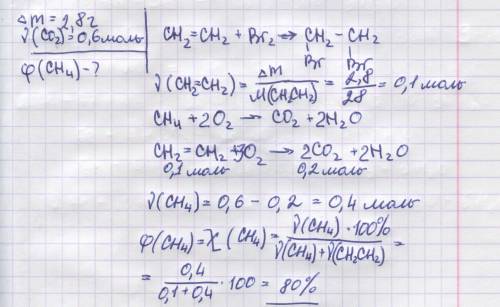 Δm = 2,8г
ν(CO₂) = 0,6моль
φ(CH₄) - ?
CH₂=CH₂ + Br₂ → CH₂ - CH₂
Br Br
ν(CH₂=CH₂) = Δm / M(CH₂CH₂) = 2,8 / 28 = 0,1 моль
CH₄ + 2O₂ → CO₂ + 2H₂O
CH₂ = CH₂ + 3O₂ → 2CO₂ + 2H₂O
0,1 моль 0,2 моль
ν(CH₄) = 0,6 - 0,2 = 0,4 моль
φ(CH₄) = χ(CH₄) = ν(CH₄) · 100% / ν(CH₄) + ν(CH₂CH₂) =
= 0,4 / 0,1 + 0,4 · 100 = 80%